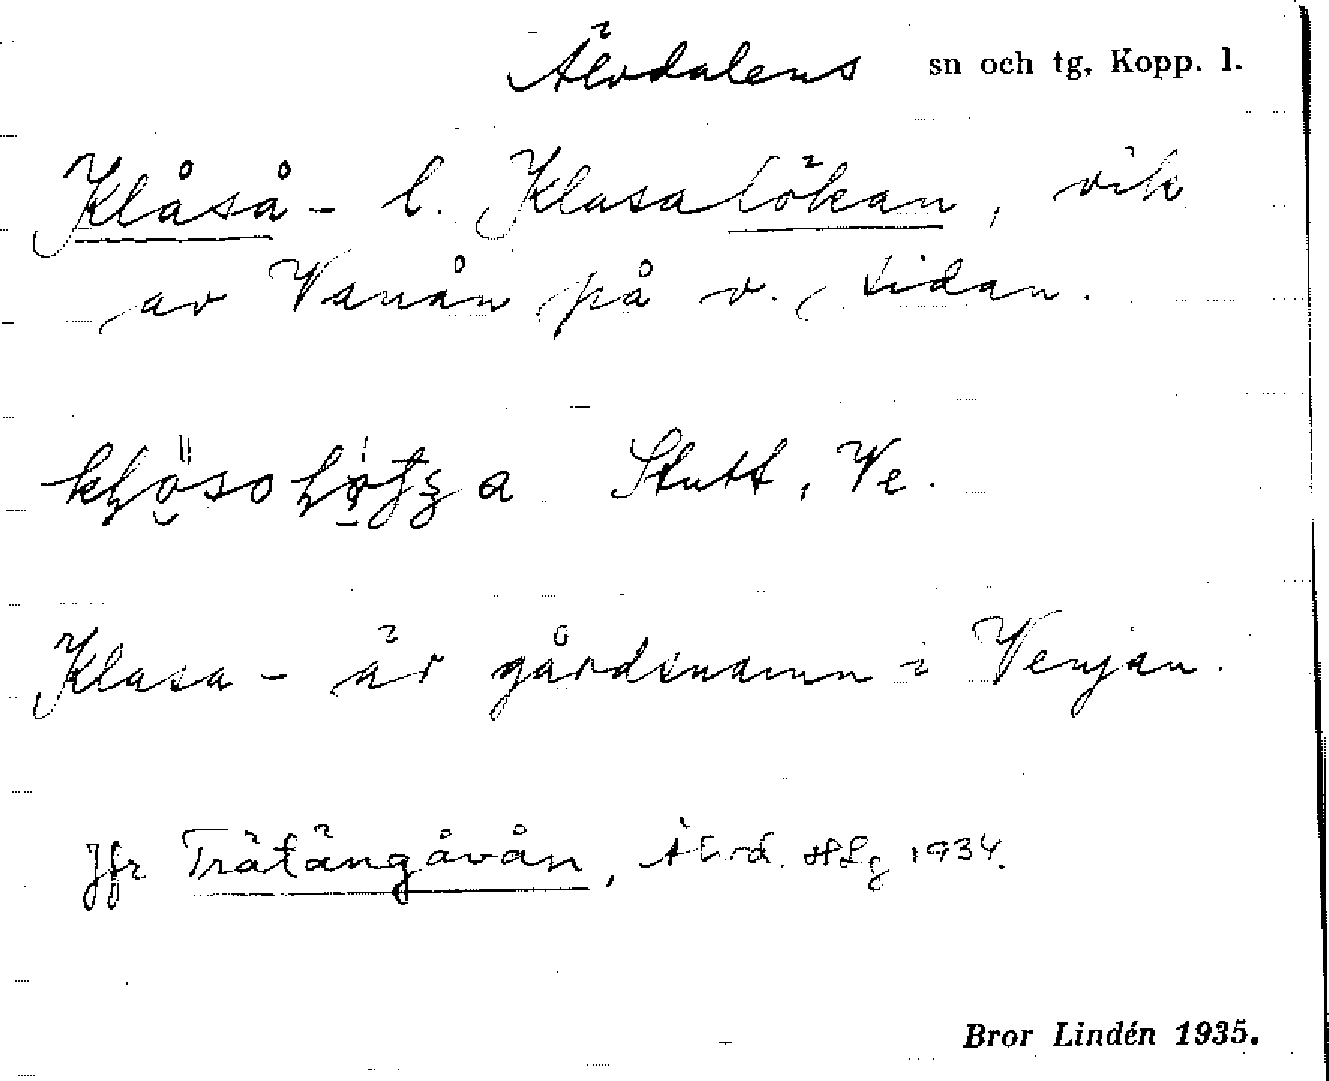 Älvdalens sn och tg, Kopp. l.
Klåså- l. Klasalökan, vik
av Vanån på v. sidan.
Stutt, Ve.
Klasa- är gårdsnamn i Venjan.
Jfr Trätängåvån, Älvd. HLg 1934.
Bror Lindén 1935.